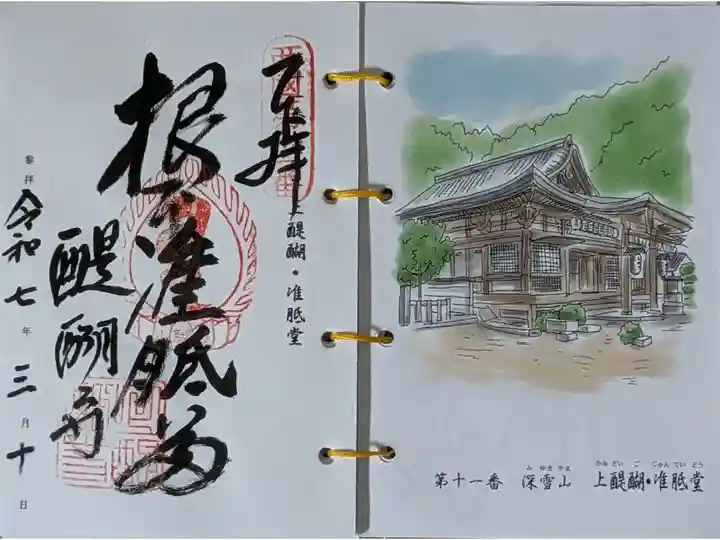 奉拝
上醍醐・准胝堂
根本准胝尊
醍醐寺
参拝 令和七年三月十日
第十一番 深雪山 上醍醐・准胝堂
み ゆき やま かみ だい ご じゅん てい どう